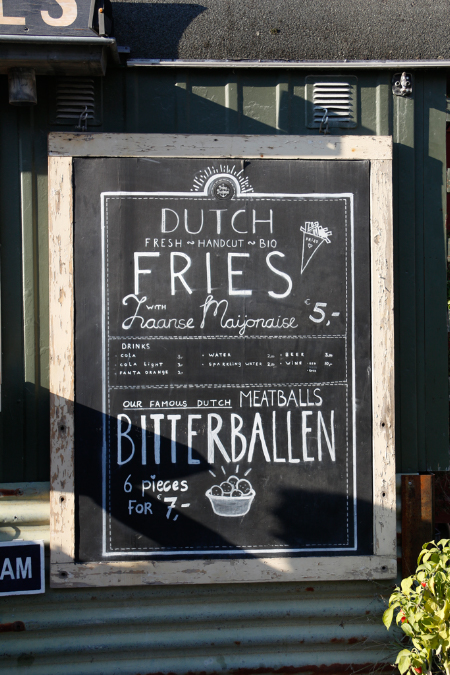 ES
DUTCH
FRESH ~ HANDCUT ~ BIO
FRIES
FRIES
WITH
Zaanse Maijonaise € 5,-
DRINKS
- COLA
- COLA LIGHT
- FANTA ORANGE
- WATER
- SPARKLING WATER
- BEER
- WINE
OUR FAMOUS DUTCH MEATBALLS
BITTERBALLEN
6 pieces
FOR € 7,-
AM